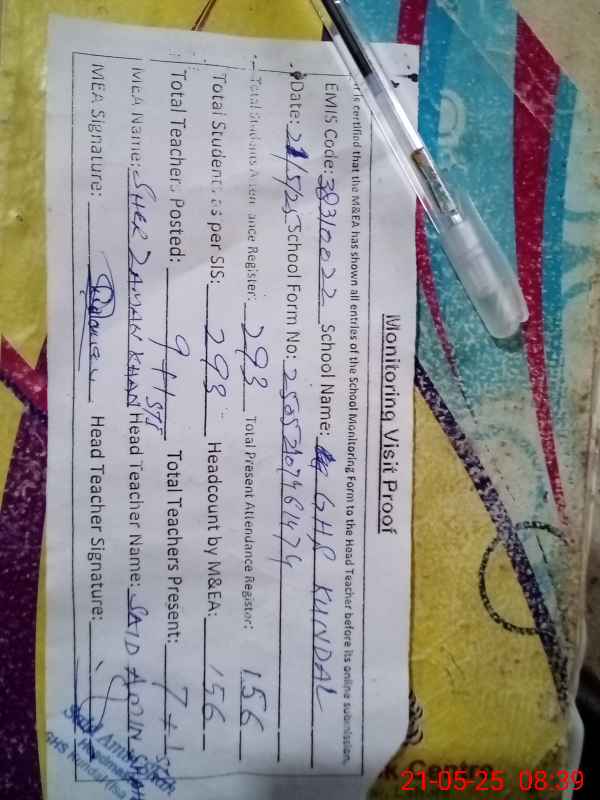 Monitoring Visit Proof
It is certified that the M&EA has shown all entries of the School Monitoring Form to the Head Teacher before its online submission.
EMIS Code: 38310022 School Name: GHS KUNDAL
Date: 21/5/25 School Form No: 2505210746147 4
Total Students Attendance Register: 293 Total Present Attendance Register: 156
Total Students as per SIS: 293 Headcount by M&EA: 156
Total Teachers Posted: 9+1 STS Total Teachers Present: 7+1
MEA Name: SHER ZAMAN KHAN Head Teacher Name: SAID AMIN SHAH
MEA Signature: Head Teacher Signature:
Said Amin Shah
Headmaster
GHS Kundal
Centre
21-05-25 08:39